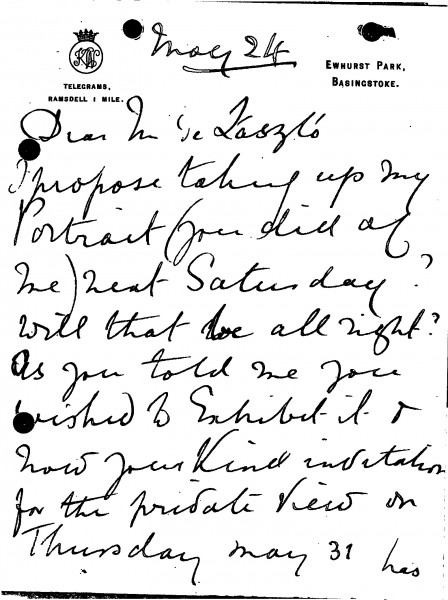 May 24
EWHURST PARK,
BASINGSTOKE.
TELEGRAMS,
RAMSDELL 1 MILE.
Dear Mr de László
I propose taking up my
Portrait (you did of
me) next Saturday?
will that be all right?
As you told me you
wished to Exhibit it &
now your Kind invitation
for the private View on
Thursday May 31 has